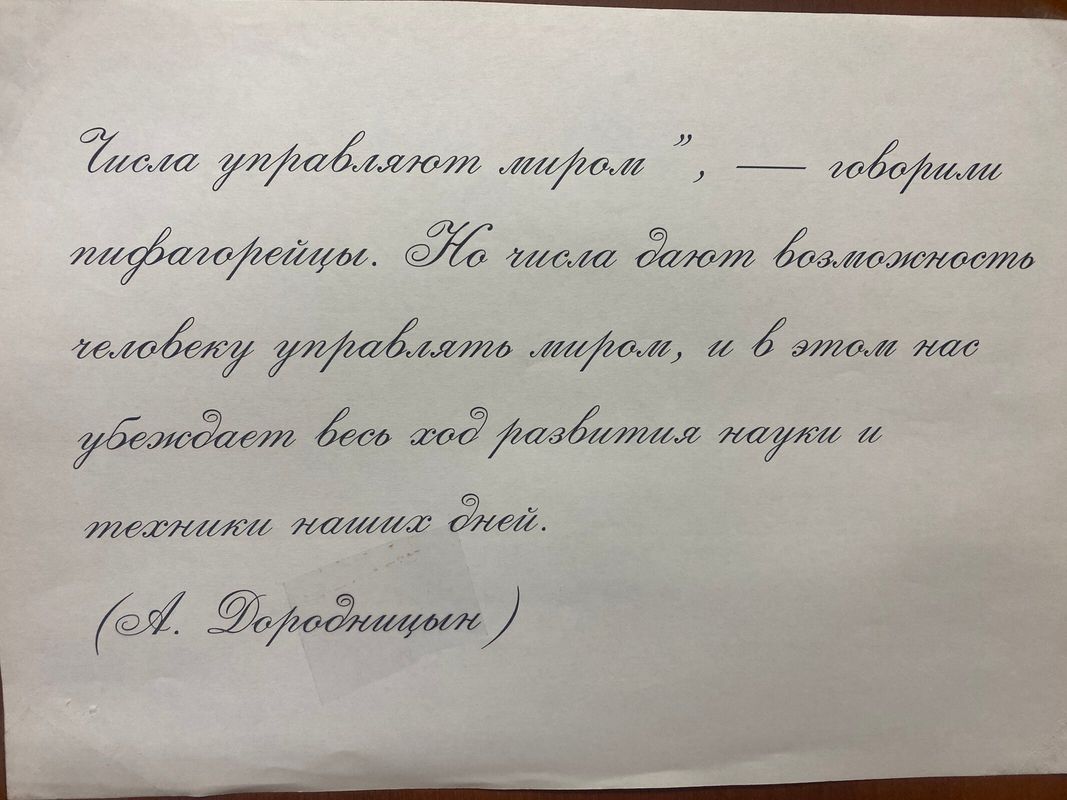 Числа управляют миром”, — говорили
пифагорейцы. Но числа дают возможность
человеку управлять миром, и в этом нас
убеждает весь ход развития науки и
техники наших дней.
(А. Дородницын)